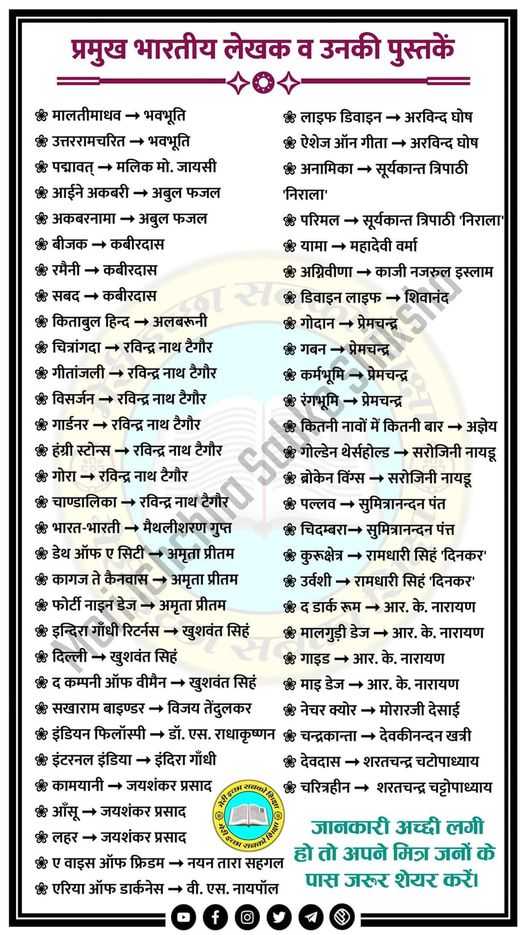 प्रमुख भारतीय लेखक व उनकी पुस्तकें
❀ मालतीमाधव → भवभूति
❀ उत्तररामचरित → भवभूति
❀ पद्मावत् → मलिक मो. जायसी
❀ आईने अकबरी → अबुल फजल
❀ अकबरनामा → अबुल फजल
❀ बीजक → कबीरदास
❀ रमैनी → कबीरदास
❀ सबद → कबीरदास
❀ किताबुल हिन्द → अलबरूनी
❀ चित्रांगदा → रविन्द्र नाथ टैगौर
❀ गीतांजली → रविन्द्र नाथ टैगौर
❀ विसर्जन → रविन्द्र नाथ टैगौर
❀ गार्डनर → रविन्द्र नाथ टैगौर
❀ हंग्री स्टोन्स → रविन्द्र नाथ टैगौर
❀ गोरा → रविन्द्र नाथ टैगौर
❀ चाण्डालिका → रविन्द्र नाथ टैगौर
❀ भारत-भारती → मैथलीशरण गुप्त
❀ डेथ ऑफ ए सिटी → अमृता प्रीतम
❀ कागज ते कैनवास → अमृता प्रीतम
❀ फोर्टी नाइन डेज → अमृता प्रीतम
❀ इन्दिरा गाँधी रिटर्नस → खुशवंत सिहं
❀ दिल्ली → खुशवंत सिहं
❀ द कम्पनी ऑफ वीमैन → खुशवंत सिहं
❀ सखाराम बाइण्डर → विजय तेंदुलकर
❀ इंडियन फिलॉस्पी → डॉ. एस. राधाकृष्णन
❀ इंटरनल इंडिया → इंदिरा गाँधी
❀ कामयानी → जयशंकर प्रसाद
❀ आँसू → जयशंकर प्रसाद
❀ लहर → जयशंकर प्रसाद
❀ ए वाइस ऑफ फ्रिडम → नयन तारा सहगल
❀ एरिया ऑफ डार्कनेस → वी. एस. नायपॉल
❀ लाइफ डिवाइन → अरविन्द घोष
❀ ऐशेज ऑन गीता → अरविन्द घोष
❀ अनामिका → सूर्यकान्त त्रिपाठी
'निराला'
❀ परिमल → सूर्यकान्त त्रिपाठी 'निराला'
❀ यामा → महादेवी वर्मा
❀ अग्निवीणा → काजी नजरुल इस्लाम
❀ डिवाइन लाइफ → शिवानंद
❀ गोदान → प्रेमचन्द्र
❀ गबन → प्रेमचन्द्र
❀ कर्मभूमि → प्रेमचन्द्र
❀ रंगभूमि → प्रेमचन्द्र
❀ कितनी नावों में कितनी बार → अज्ञेय
❀ गोल्डेन थेर्सहोल्ड → सरोजिनी नायडू
❀ ब्रोकेन विंग्स → सरोजिनी नायडू
❀ पल्लव → सुमित्रानन्दन पंत
❀ चिदम्बरा→ सुमित्रानन्दन पंत्त
❀ कुरूक्षेत्र → रामधारी सिहं 'दिनकर'
❀ उर्वशी → रामधारी सिहं 'दिनकर'
❀ द डार्क रूम → आर. के. नारायण
❀ मालगुड़ी डेज → आर. के. नारायण
❀ गाइड → आर. के. नारायण
❀ माइ डेज → आर. के. नारायण
❀ नेचर क्योर → मोरारजी देसाई
❀ चन्द्रकान्ता → देवकीनन्दन खत्री
❀ देवदास → शरतचन्द्र चटोपाध्याय
❀ चरित्रहीन → शरतचन्द्र चट्टोपाध्याय
मेरी इच्छा सबको शिक्षा
मेरी इच्छा सबको शिक्षा
जानकारी अच्छी लगी
हो तो अपने मित्र जनों के
पास जरूर शेयर करें।